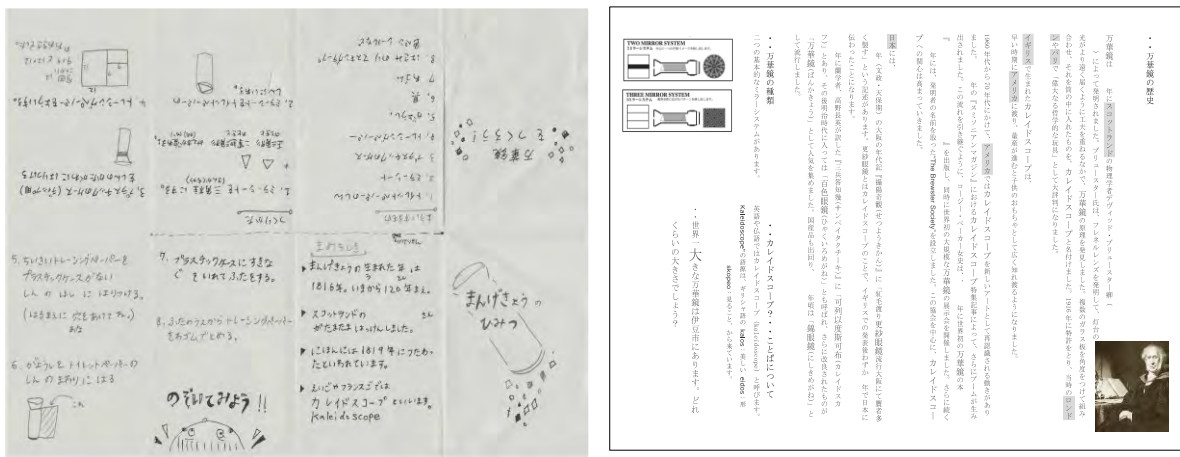 万華鏡
をつくろう!
よういするもの
1. トイレットペーパーのしん
2. ミラーシート
3. プラスチックケース
4. トレーシングペーパー
7. わゴム
つくりかた
1. ミラーシートを 三角柱 にする。
2. ミラーシートをトイレットペーパーの
しんにいれる。
3. プラスチックのケース
4. トレーシングペーパーを
5. ちいさいトレーシングペーパーを
プラスチックケースがない
しん の はし に はりつける。
(はるまえに 穴をあけておく。)
あな
6. がようしを トイレットペーパーの
しんの まわり に はる
これ
7. プラスチックケースに すきな
ぐ を いれて ふたをする。
8. ふたのうえから トレーシングペーパー
をわゴムでとめる。
のぞいてみよう!!
まめちしき
まんげきょうの 生まれた年 は
1816年。
スコットランドの
がたまたま はっけんしました。
にほんには 1819年につたわっ
たといわれています。
えいごやフランスごでは
カレイドスコープ といいます。
Kaleidoscope
まんげきょうの
ひみつ
・・万華鏡の歴史
万華鏡は　　年にスコットランドの物理学者デイヴィッド・ブリュースター卿(
)によって発明されました。ブリュースター氏は、フレネルレンズを発明して、灯台の
光がより遠く届くように工夫を重ねるなかで、万華鏡の原理を発見しました。複数のガラス板を角度をつけて組み
合わせ、それを筒の中に入れたものを、カレイドスコープと名付けました。1816年に特許をとり、当時のロンド
ンやパリで「偉大なる哲学的な玩具」として大評判になりました。
イギリスで生まれたカレイドスコープは、
早い時期にアメリカに渡り、量産が進むと子供のおもちゃとして広く知れ渡るようになりました。
1960年代から70年代にかけて、アメリカではカレイドスコープを新しいアートとして再認識される動きがあり
ました。　年の『スミソニアンマガジン』におけるカレイドスコープ特集記事によって、さらにブームが生み
出されました。この流れを引き継ぐように、コージー・ベーカー女史は、　年に世界初の万華鏡の本
『　』を出版し、同時に世界初の大規模な万華鏡の展示会を開催しました。さらに続く
年には、発明者の名前を取った"The Brewster Society"を設立しました。この協会を中心に、カレイドスコー
プへの関心は高まっていきました。
日本には、
年(文政・天保期)の大阪の年代記『摂陽奇観(せつようきかん)』に「紅毛渡り更紗眼鏡流行大阪にて贋者多
く製す」という記述があります。更紗眼鏡とはカレイドスコープのことで、イギリスでの発表後わずか　年で日本に
伝わったことになります。
年に蘭学者、高野長英が訳した『三兵答知幾(サンペイタクチーキ)』に「可列以度斯可布(カレイドスカ
フ)」とあり、その後明治時代に入っては「百色眼鏡(ひゃくいろめがね)」とも呼ばれ、さらに改良されたものが
「万華鏡(ばんかきょう)」として人気を集めました。国産品も出回り、　年頃は「錦眼鏡(にしきめがね)」と
して流行しました。
・・万華鏡の種類
二つの基本的なミラーシステムがあります。
TWO MIRROR SYSTEM
THREE MIRROR SYSTEM
・・カレイドスコープ?・・・ことばについて
英語や仏語ではカレイドスコープ(kaleidoscope)と呼びます。
Kaleidoscopeの語源は、ギリシャ語の kalos:美しい eidos:形
skopeo:見ること、から来ています。
・・世界一大きな万華鏡は伊豆市にあります。どれ
くらいの大きさでしょう?